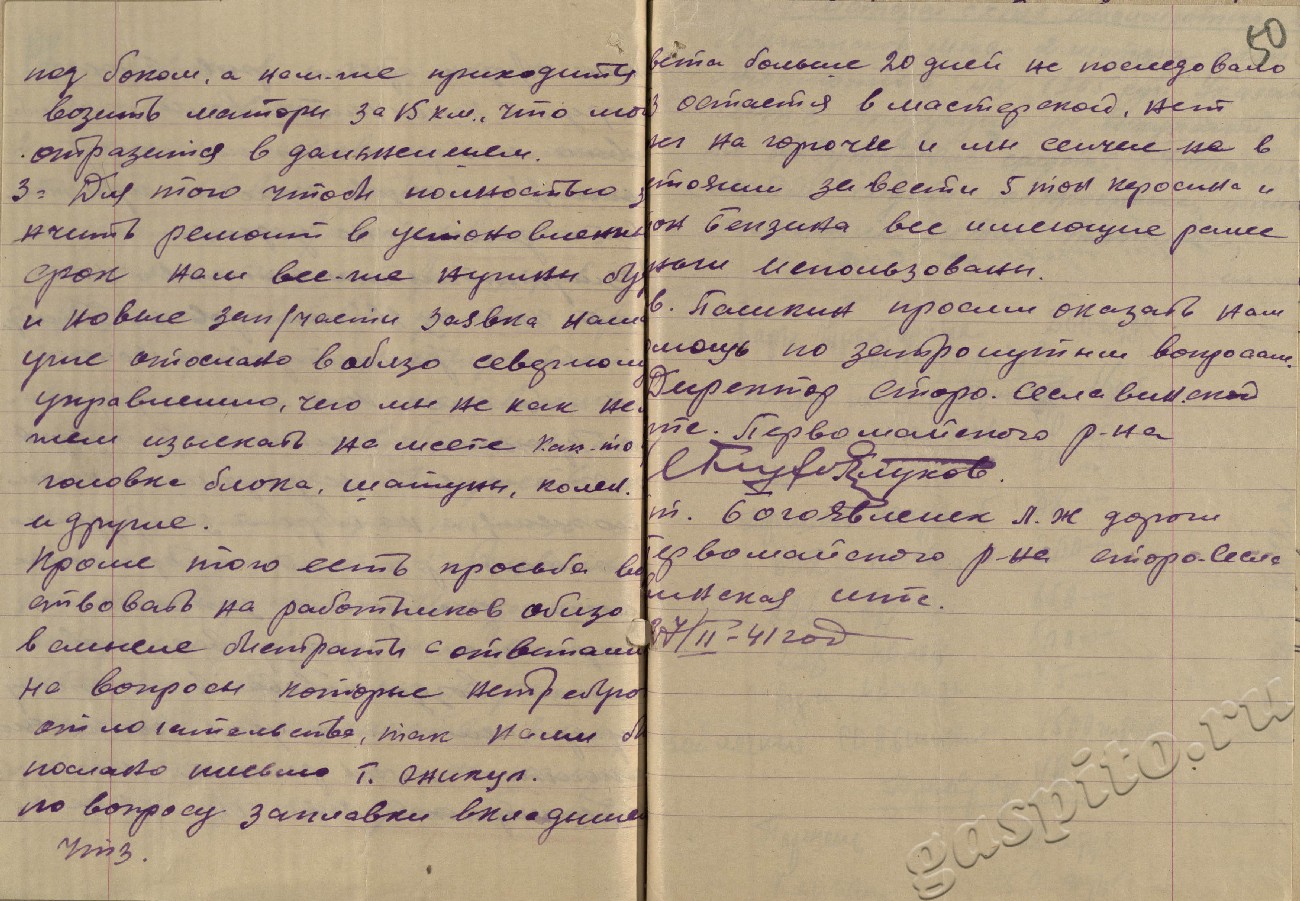 под боком, а нам-же приходится
возить моторы за 15 км., что мо
отразится в дальнейшем.
3- Для того чтобы полностью з
нчить ремонт в установленны
срок нам все-же нужны бу
и новые зап/части заявка нами
уже отослано в облзо северному
управлению, чего мы не как не
жем изыскать на месте как-то
головка блока, шатуны, колен.
и другие.
Кроме того есть просьба во
ствовать на работников облзо
в смысле быстраты с ответами
на вопросы которые нетребую
отлогательства, так нами бы
послано письмо т.
по вопросу заплавки вкладыше
чтз.
50
вета больше 20 дней не последовало
з остается в мастерской, нет
на горючее и мы сейчас не в
стоянии завести 5 тон керосина и
тон Бензина все имеющие ранее
ньги использованы.
в. Пашкин просим оказать нам
омощь по затронутым вопросам.
Директор старо-Сеславинской
мтс. Первомайского р-на
Глуков.
ст. Богоявленск Л. Ж дороги
Первомайского р-на старо-Сесла
винская мтс.
27/II-41 год
gaspito.ru